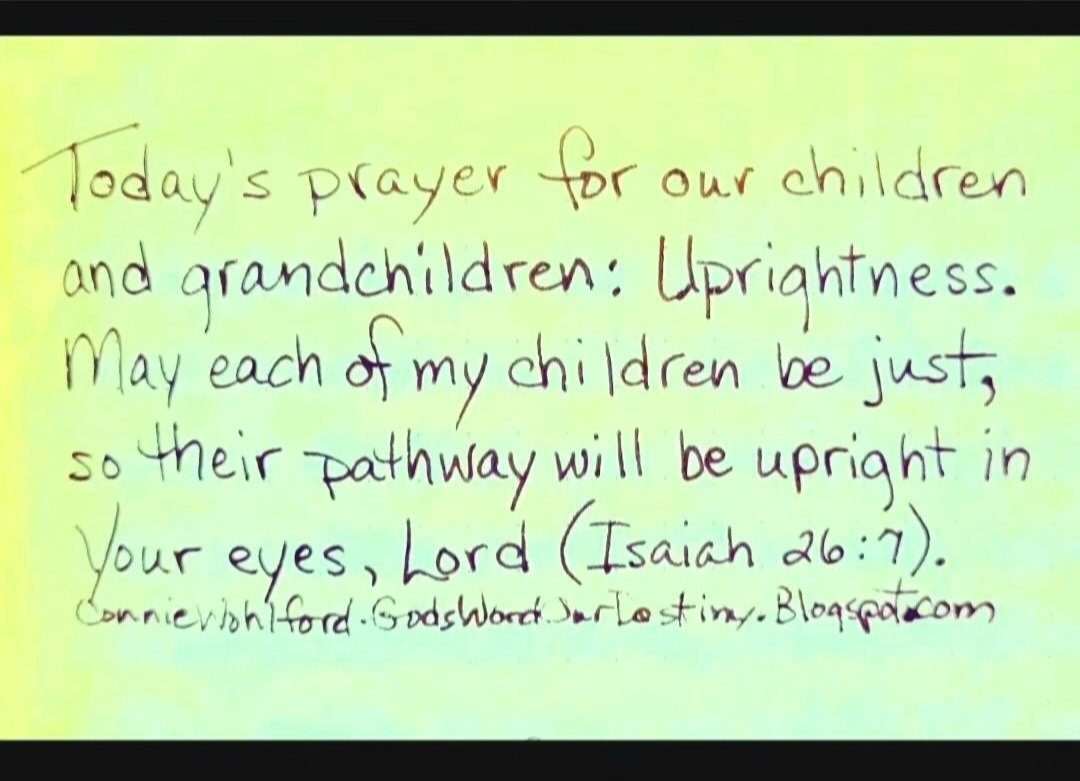 Today's prayer for our children
and grandchildren: Uprightness.
May each of my children be just,
so their pathway will be upright in
Your eyes, Lord (Isaiah 26:7).
GodsWord. .Blogspot.com